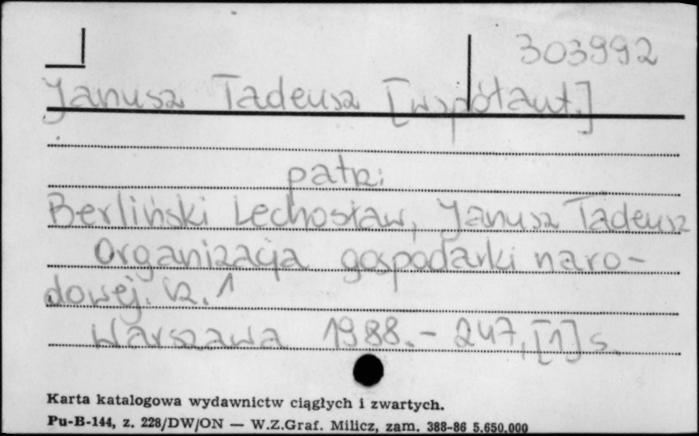 303992
Janusz Tadeusz [współaut.]
patrz:
Berliński Lechosław, Janusz Tadeusz
Organizacja gospodarki naro-
dowej. Cz. 1
Warszawa 1988. - 247, [1] s.
Karta katalogowa wydawnictw ciągłych i zwartych.
Pu-B-144, z. 228/DW/ON — W.Z.Graf. Milicz, zam. 388-86 5.650.000